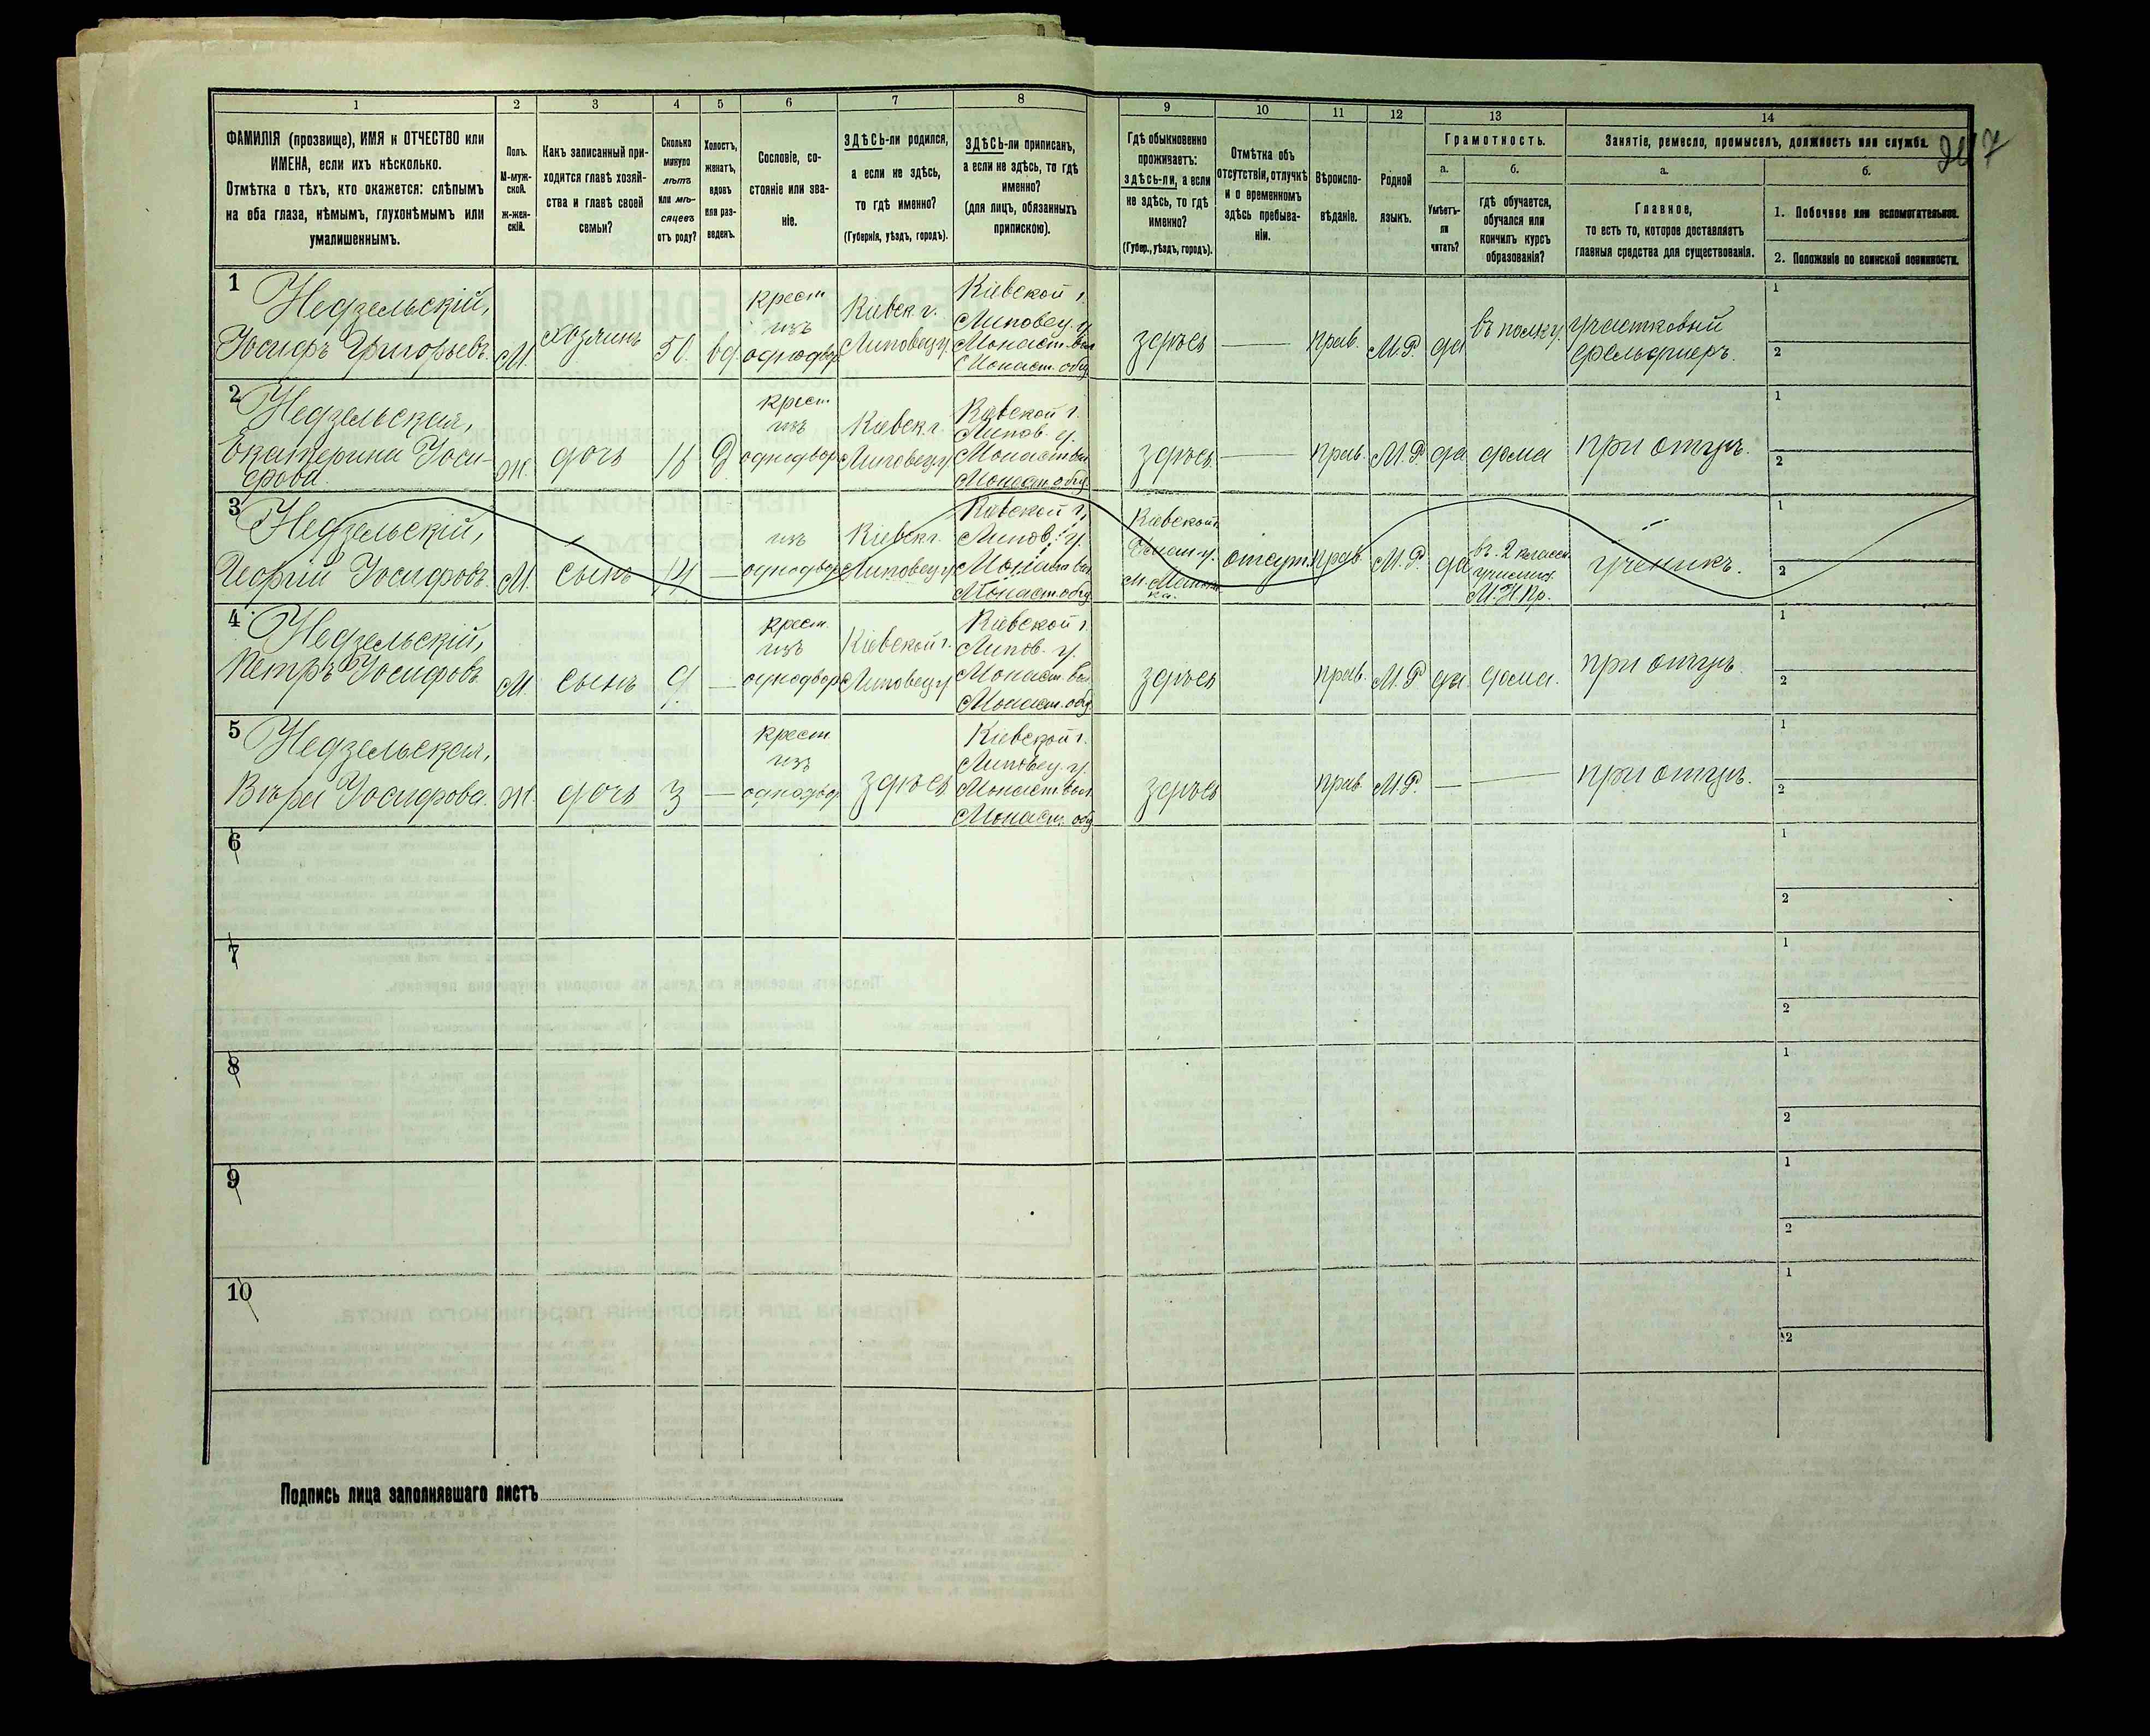 1 2 3 4 5 6 7 8 9 10 11 12 13 14
ФАМИЛІЯ (прозвище), ИМЯ и ОТЧЕСТВО или
ИМЕНА, если ихъ нѣсколько.
Отмѣтка о тѣхъ, кто окажется: слѣпымъ
на оба глаза, нѣмымъ, глухонѣмымъ или
умалишеннымъ.
Полъ.
М-муж-
ской.
ж-жен-
скій.
Какъ записанный при-
ходится главѣ хозяй-
ства и главѣ своей
семьи?
Сколько
минуло
лѣтъ
или мѣ-
сяцевъ
отъ роду?
Холостъ,
женатъ,
вдовъ
или раз-
веденъ.
Сословіе, со-
стояніе или зва-
ніе.
ЗДѢСЬ-ли родился,
а если не здѣсь,
то гдѣ именно?
(Губернія, уѣздъ, городъ).
ЗДѢСЬ-ли приписанъ,
а если не здѣсь, то гдѣ
именно?
(для лицъ, обязанныхъ
припискою).
Гдѣ обыкновенно
проживаетъ:
здѣсь-ли, а если
не здѣсь, то гдѣ
именно?
(Губер., уѣздъ, городъ).
Отмѣтка объ
отсутствіи, отлучкѣ
и о временномъ
здѣсь пребыва-
ніи.
Вѣроиспо-
вѣданіе.
Родной
языкъ.
Грамотность.
а.
Умѣетъ-
ли
читать?
б.
гдѣ обучается,
обучался или
кончилъ курсъ
образованія?
Занятіе, ремесло, промыселъ, должность или служба.
а.
Главное,
то есть то, которое доставляетъ
главныя средства для существованія.
б.
1. Побочное или вспомогательное.
2. Положеніе по воинской повинности.
7
1
Недзельскій,
Іосифъ Григорьевъ.
М.
хозяинъ
вд.
крест.
изъ
однодвор
Кіевск. г.
Липовец у.
Кіевской г.
Липовец. у.
Монаст. вол
Монаст. общ
здѣсь
—
прав.
М.Р.
да
въ полку.
участковый
фельдшеръ.
1
2
2
Недзельская,
Екатерина Іоси-
фова.
Ж.
дочь
Д
крест.
изъ
однодвор
Кіевск г.
Липовец у.
Кіевской г.
Липов. у.
Монаст вол
Монаст общ
здѣсь
—
прав.
М.Р.
да
дома
при отцѣ.
1
2
3
Недзельскій,
Георгій Іосифовъ.
М.
сынъ
14
—
изъ
однодвор
Кіевск г.
Липовец у
Кіевской г.
Липов. у.
Монаст вол
Монаст общ
Кіевской г
отсут.
прав.
М.Р.
да
въ 2 класен.
училищ.
М.Н.Пр.
ученикъ.
1
2
4
Недзельскій,
Петръ Іосифовъ
М.
сынъ
9.
—
крест.
изъ
однодвор
Кіевской г.
Липовец у
Кіевской г.
Липов. у.
Монаст. вол
Монаст. общ
здѣсь
прав.
М.Р
да.
дома.
при отцѣ.
1
2
5
Недзельская,
Вѣра Іосифова.
Ж.
дочь
3
—
крест.
изъ
однодвор
здѣсь
Кіевской г.
Липовец. у.
Монаст вол
Монаст. общ
здѣсь
прав.
М.Р.
—
—
при отцѣ.
1
2
6
1
2
7
1
2
8
1
2
9
1
2
10
1
2
Подпись лица заполнявшаго листъ